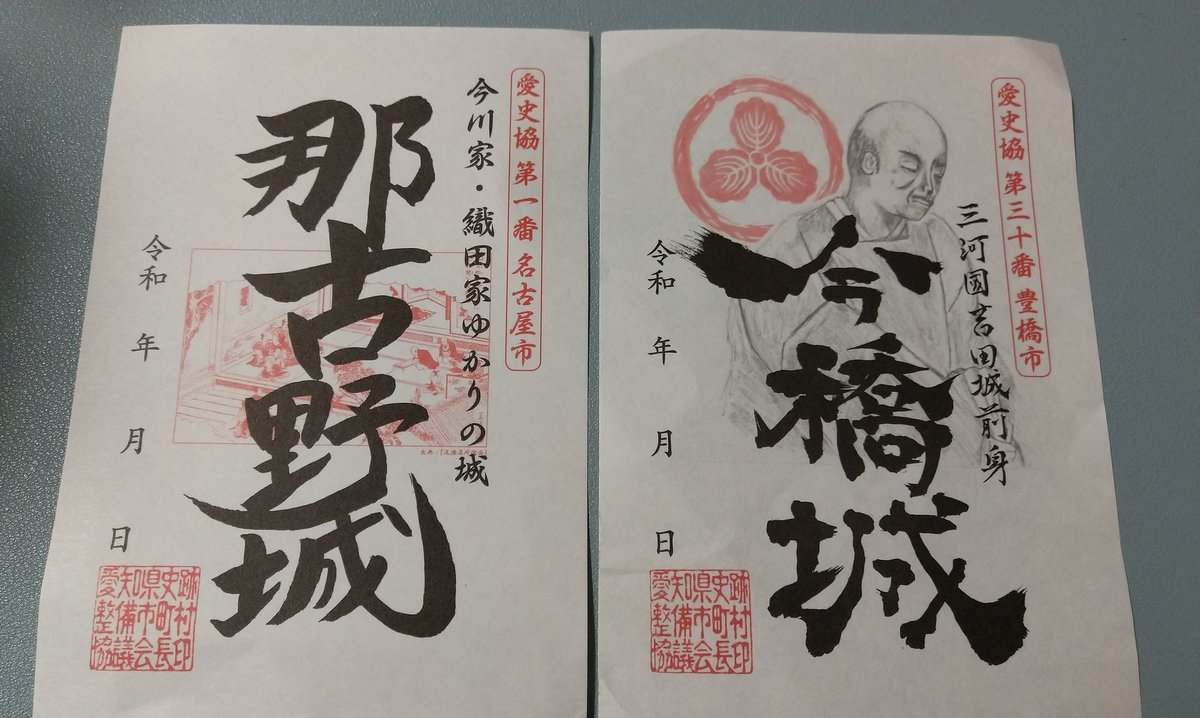 愛史協 第一番 名古屋市
今川家・織田家ゆかりの城
那古野城
令和 年 月 日
愛知県史跡
整備市町村
協議会長印
愛史協 第三十番 豊橋市
三河国吉田城前身
今橋城
令和 年 月 日
愛知県史跡
整備市町村
協議会長印